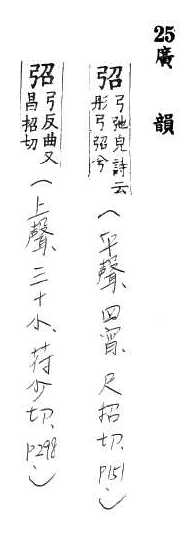 25廣韻
弨弓弛皃詩云彤弓弨兮（平聲、四宵、尺招切、P151、）
弨弓反曲又昌招切（上聲、三十小、荷少切、P298、）